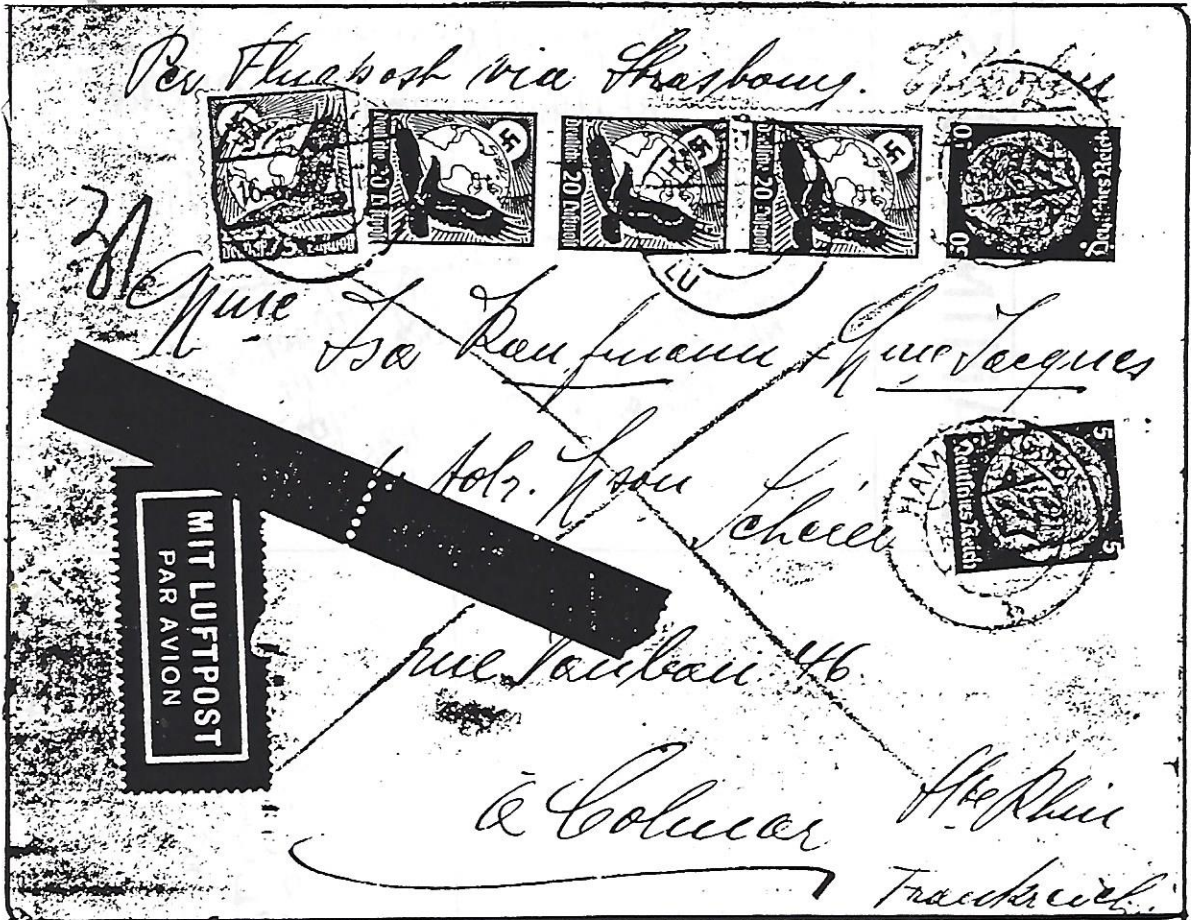 Per Flugpost via Strasbourg.
Deutsche 20 Luftpost
Deutsche 20 Luftpost
Deutsche 20 Luftpost
Deutsches Reich
LU
Mme Isa Kaufmann Mme Jacques
Adr. Mson
HAM
5 Deutsches Reich 5
MIT LUFTPOST
PAR AVION
rue Vauban 46
à Colmar
Hte Rhin
Frankreich.